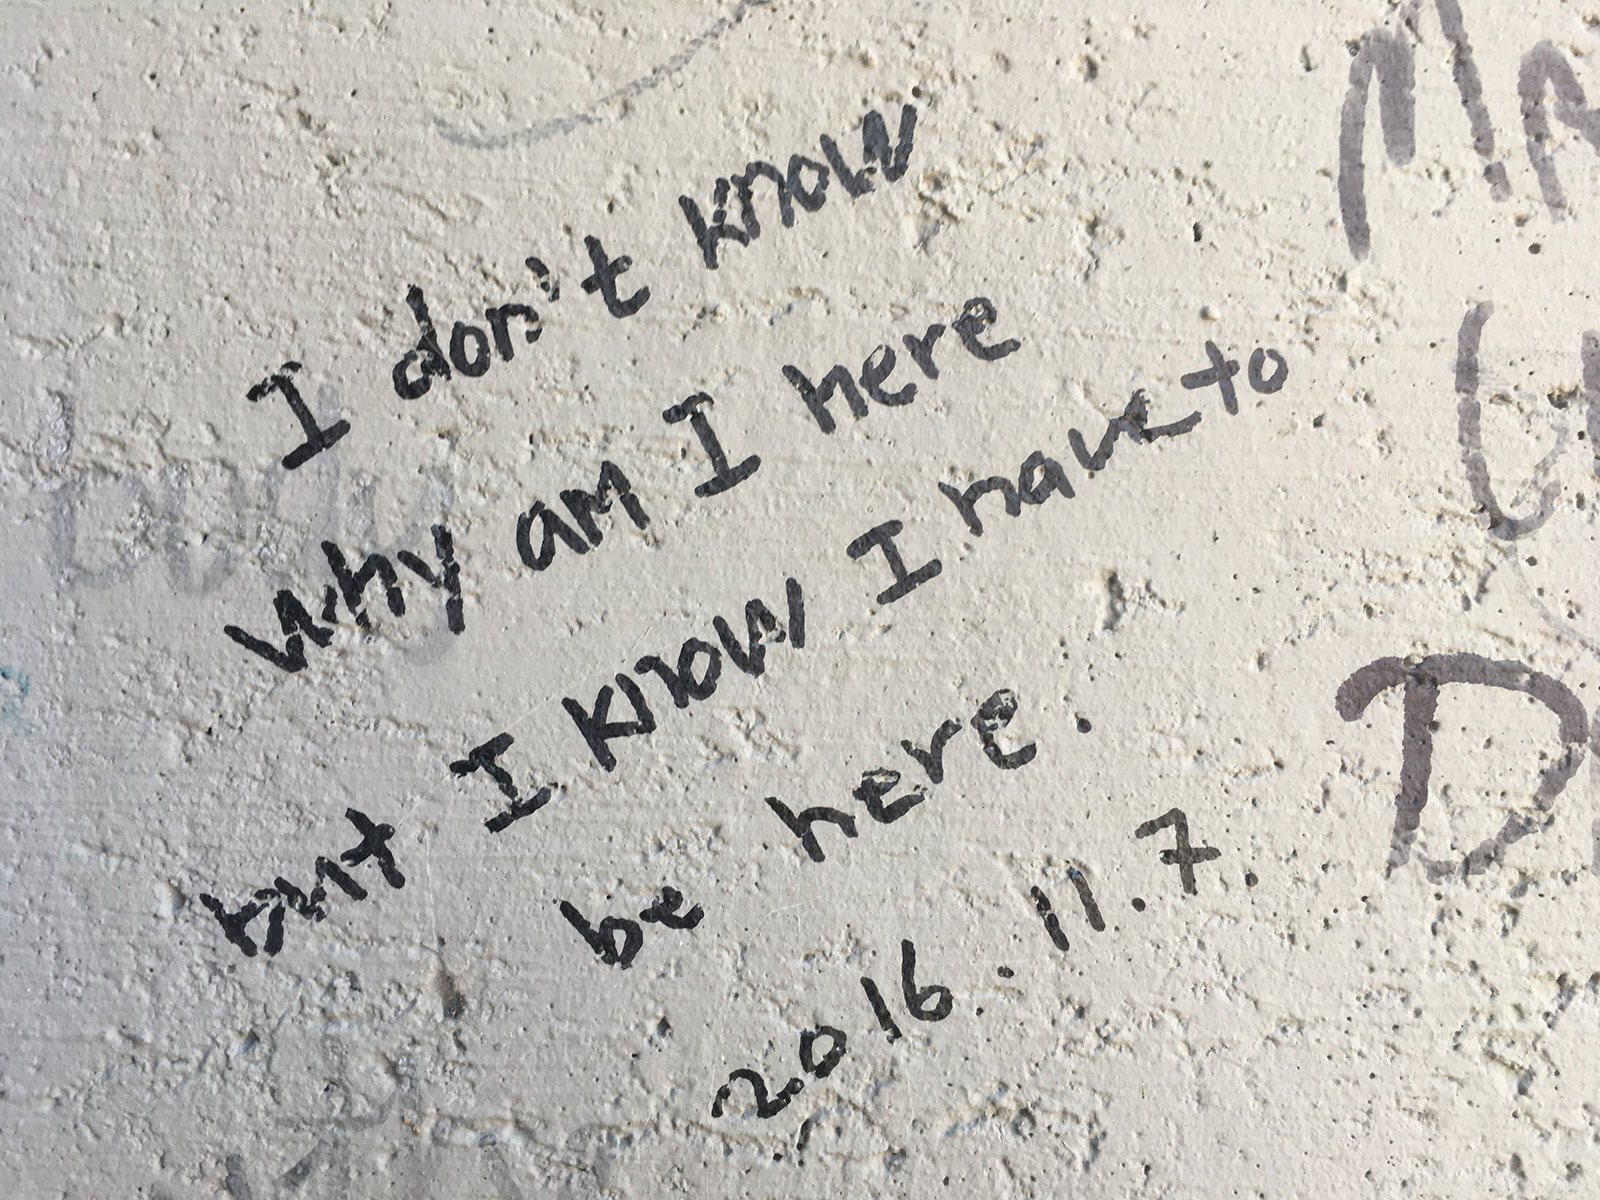 I don't know
why am I here
but I know I have to
be here.
2016. 11. 7.